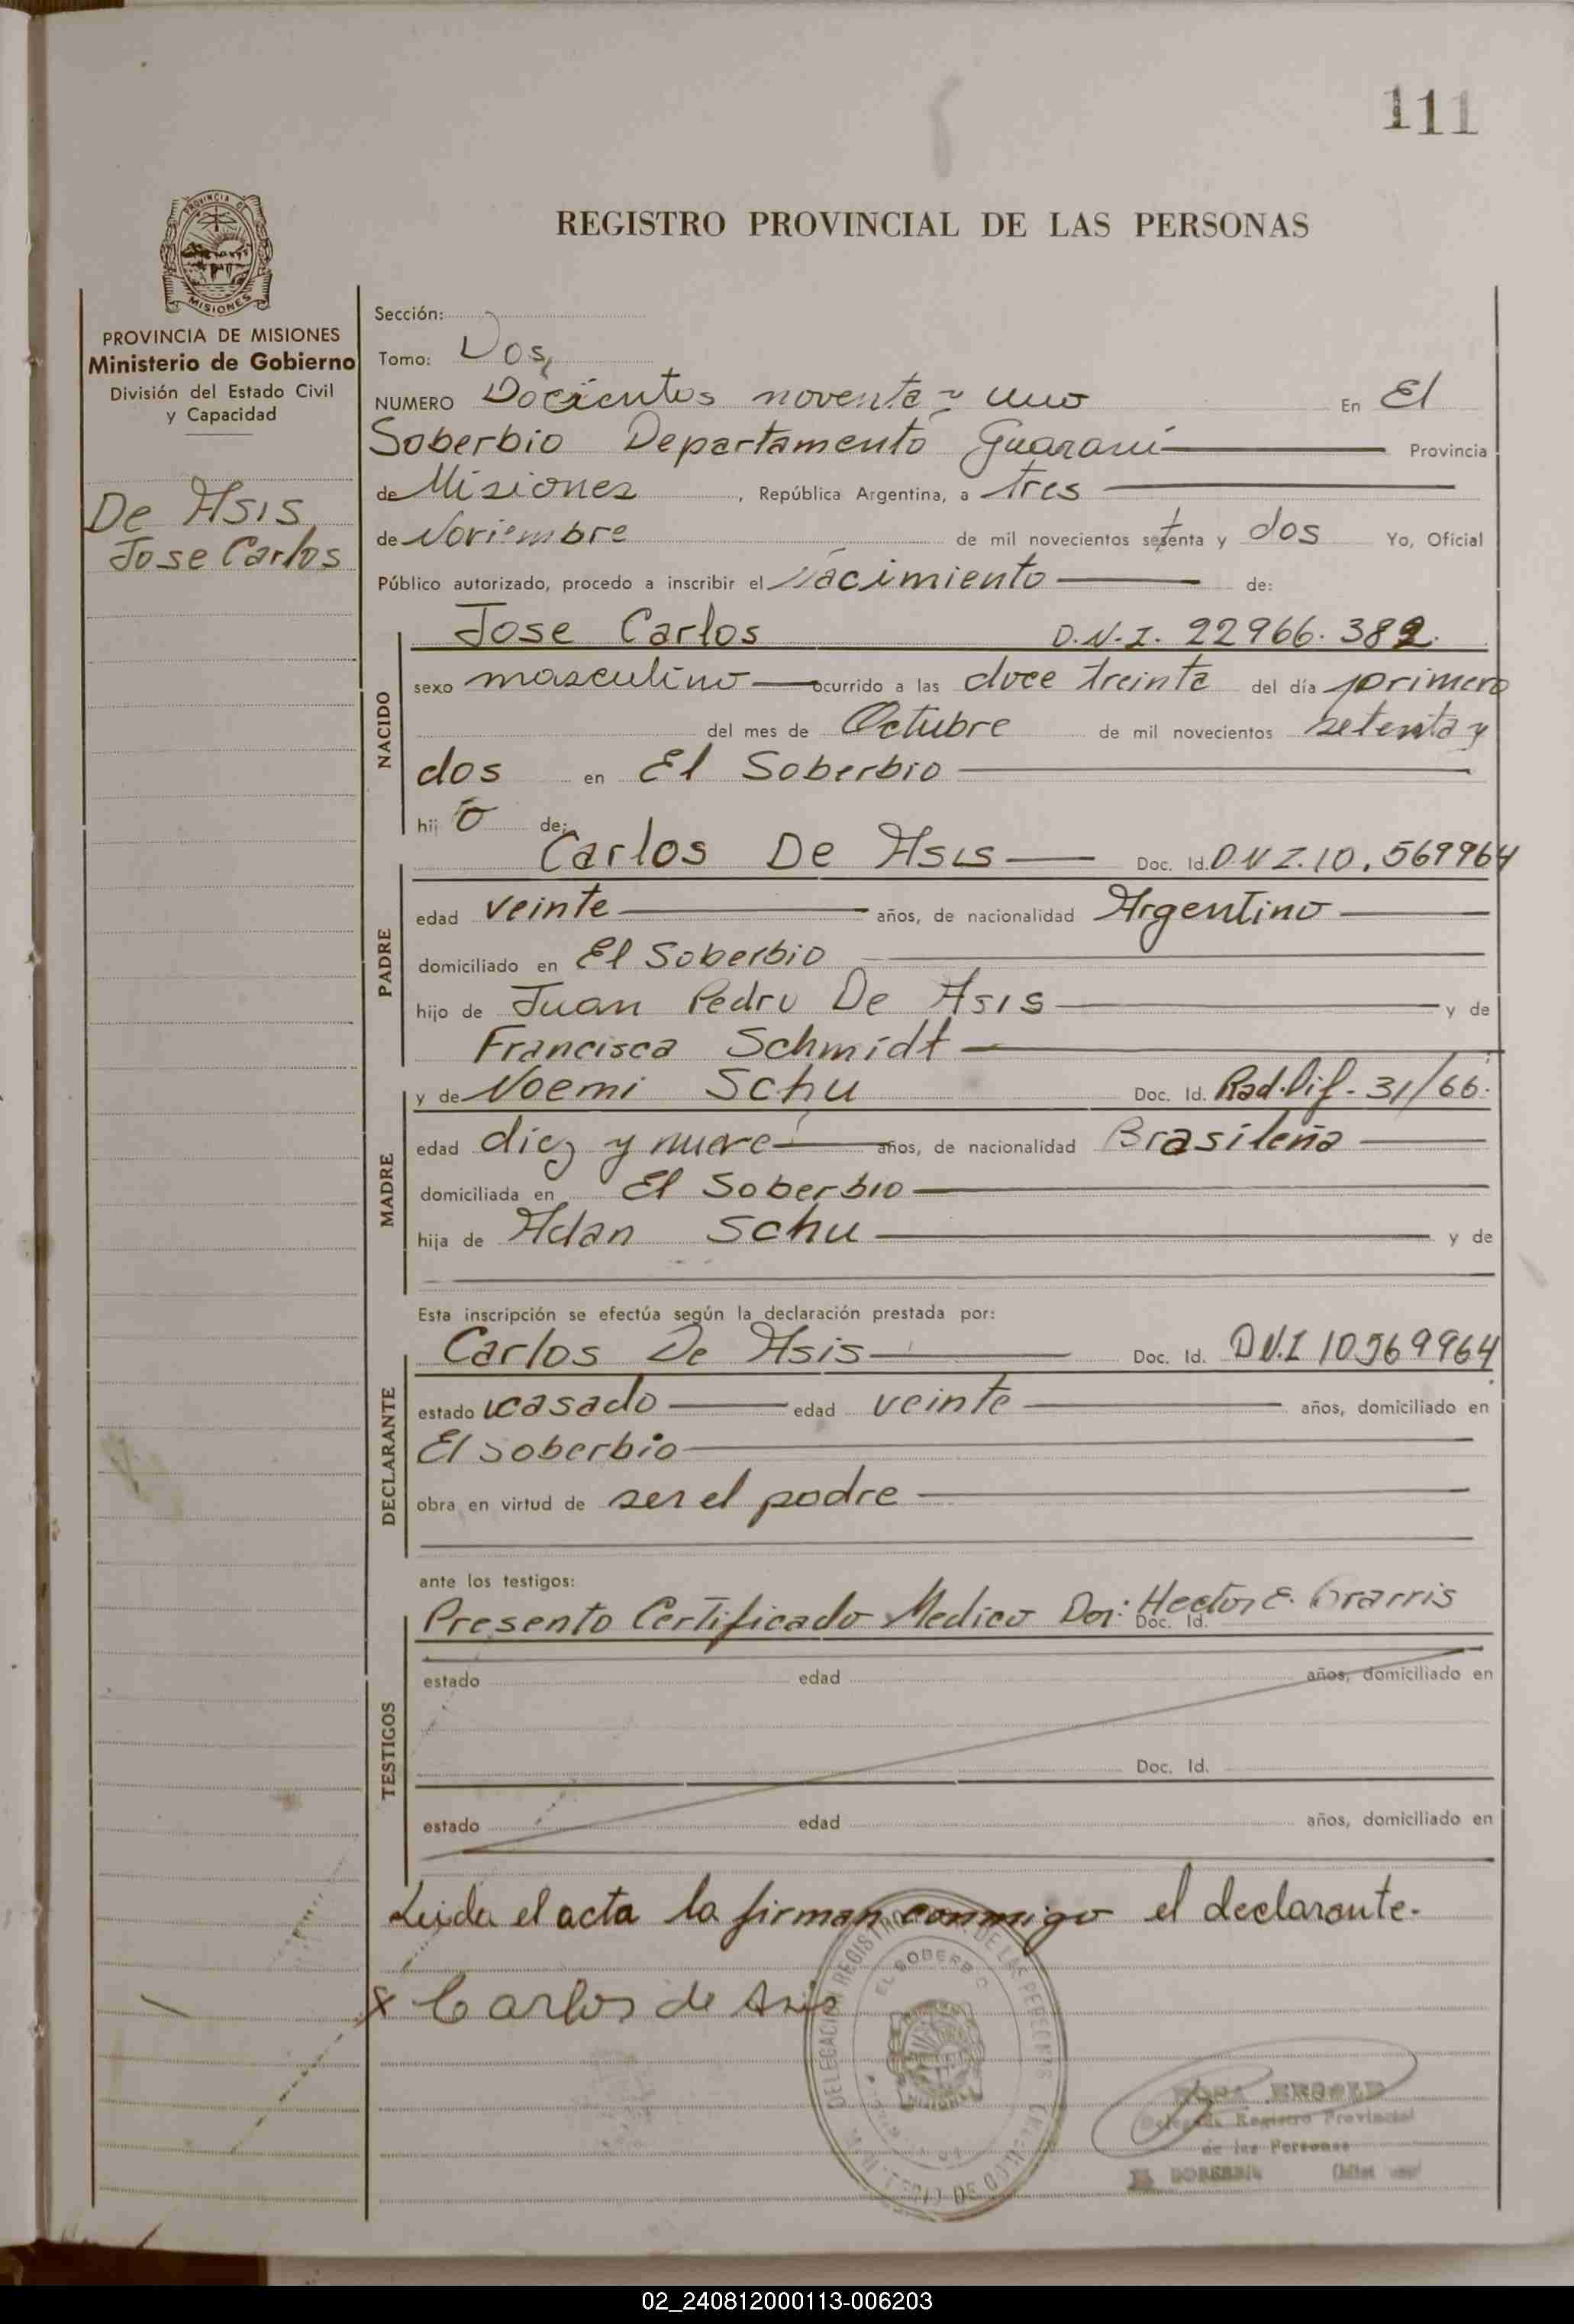 111
PROVINCIA DE
MISIONES
REGISTRO PROVINCIAL DE LAS PERSONAS
PROVINCIA DE MISIONES
Ministerio de Gobierno
División del Estado Civil
y Capacidad
De Asis
Jose Carlos
Sección:
Tomo: Dos
NUMERO Docientos noventa y uno En El
Soberbio Departamento Guaraní Provincia
de Misiones, República Argentina, a tres
de Noviembre de mil novecientos setenta y dos Yo, Oficial
Público autorizado, procedo a inscribir el Nacimiento de:
NACIDO
Jose Carlos D.N.I. 22966.382.
sexo masculino ocurrido a las doce treinta del día primero
del mes de Octubre de mil novecientos setenta y
dos en El Soberbio
hijo de:
PADRE
Carlos De Asis Doc. Id. D.N.I. 10.569964
edad veinte años, de nacionalidad Argentino
domiciliado en El Soberbio
hijo de Juan Pedro De Asis y de
Francisca Schmidt
MADRE
y de Noemi Schu Doc. Id. Rad. 31/66.
edad diez y nueve años, de nacionalidad Brasileña
domiciliada en El Soberbio
hija de Adan Schu y de
Esta inscripción se efectúa según la declaración prestada por:
DECLARANTE
Carlos De Asis Doc. Id. D.N.I 10569964
estado casado edad veinte años, domiciliado en
El Soberbio
obra en virtud de ser el padre
ante los testigos:
TESTIGOS
Presento Certificado Medico Dor: Hector E. Doc. Id.
estado edad años, domiciliado en
Doc. Id.
estado edad años, domiciliado en
Leida el acta la firman conmigo el declarante.
x Carlos de Asis
DELEGACION REGISTRO DE LAS PERSONAS
EL SOBERBIO
Registro Provincial
de las Personas
02_240812000113-006203